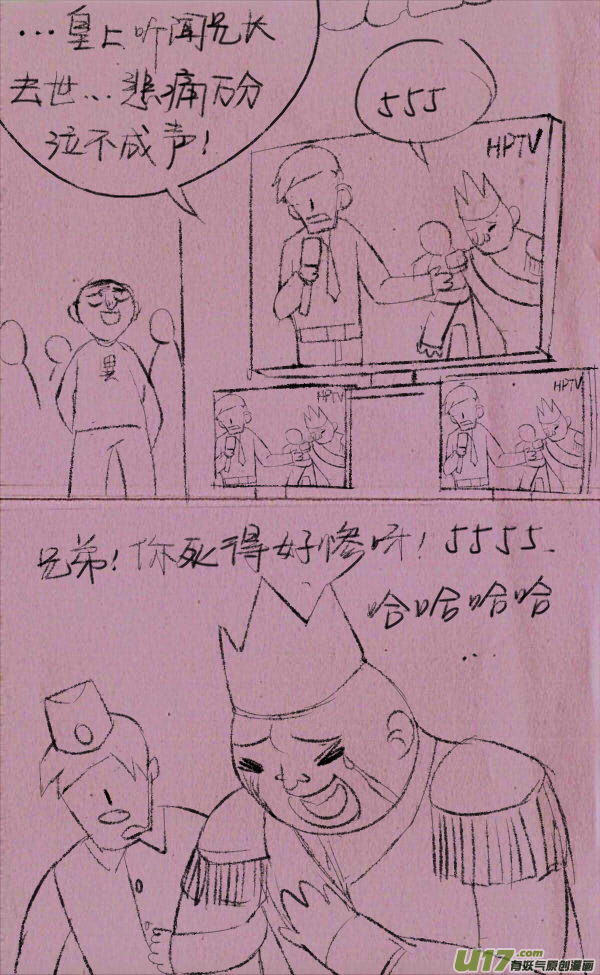 …皇上听闻兄长
去世…悲痛万分
泣不成声!
555
HPTV
HPTV
HPTV
兄弟!你死得好惨呀!5555
哈哈哈哈
U17.com
有妖气原创漫画